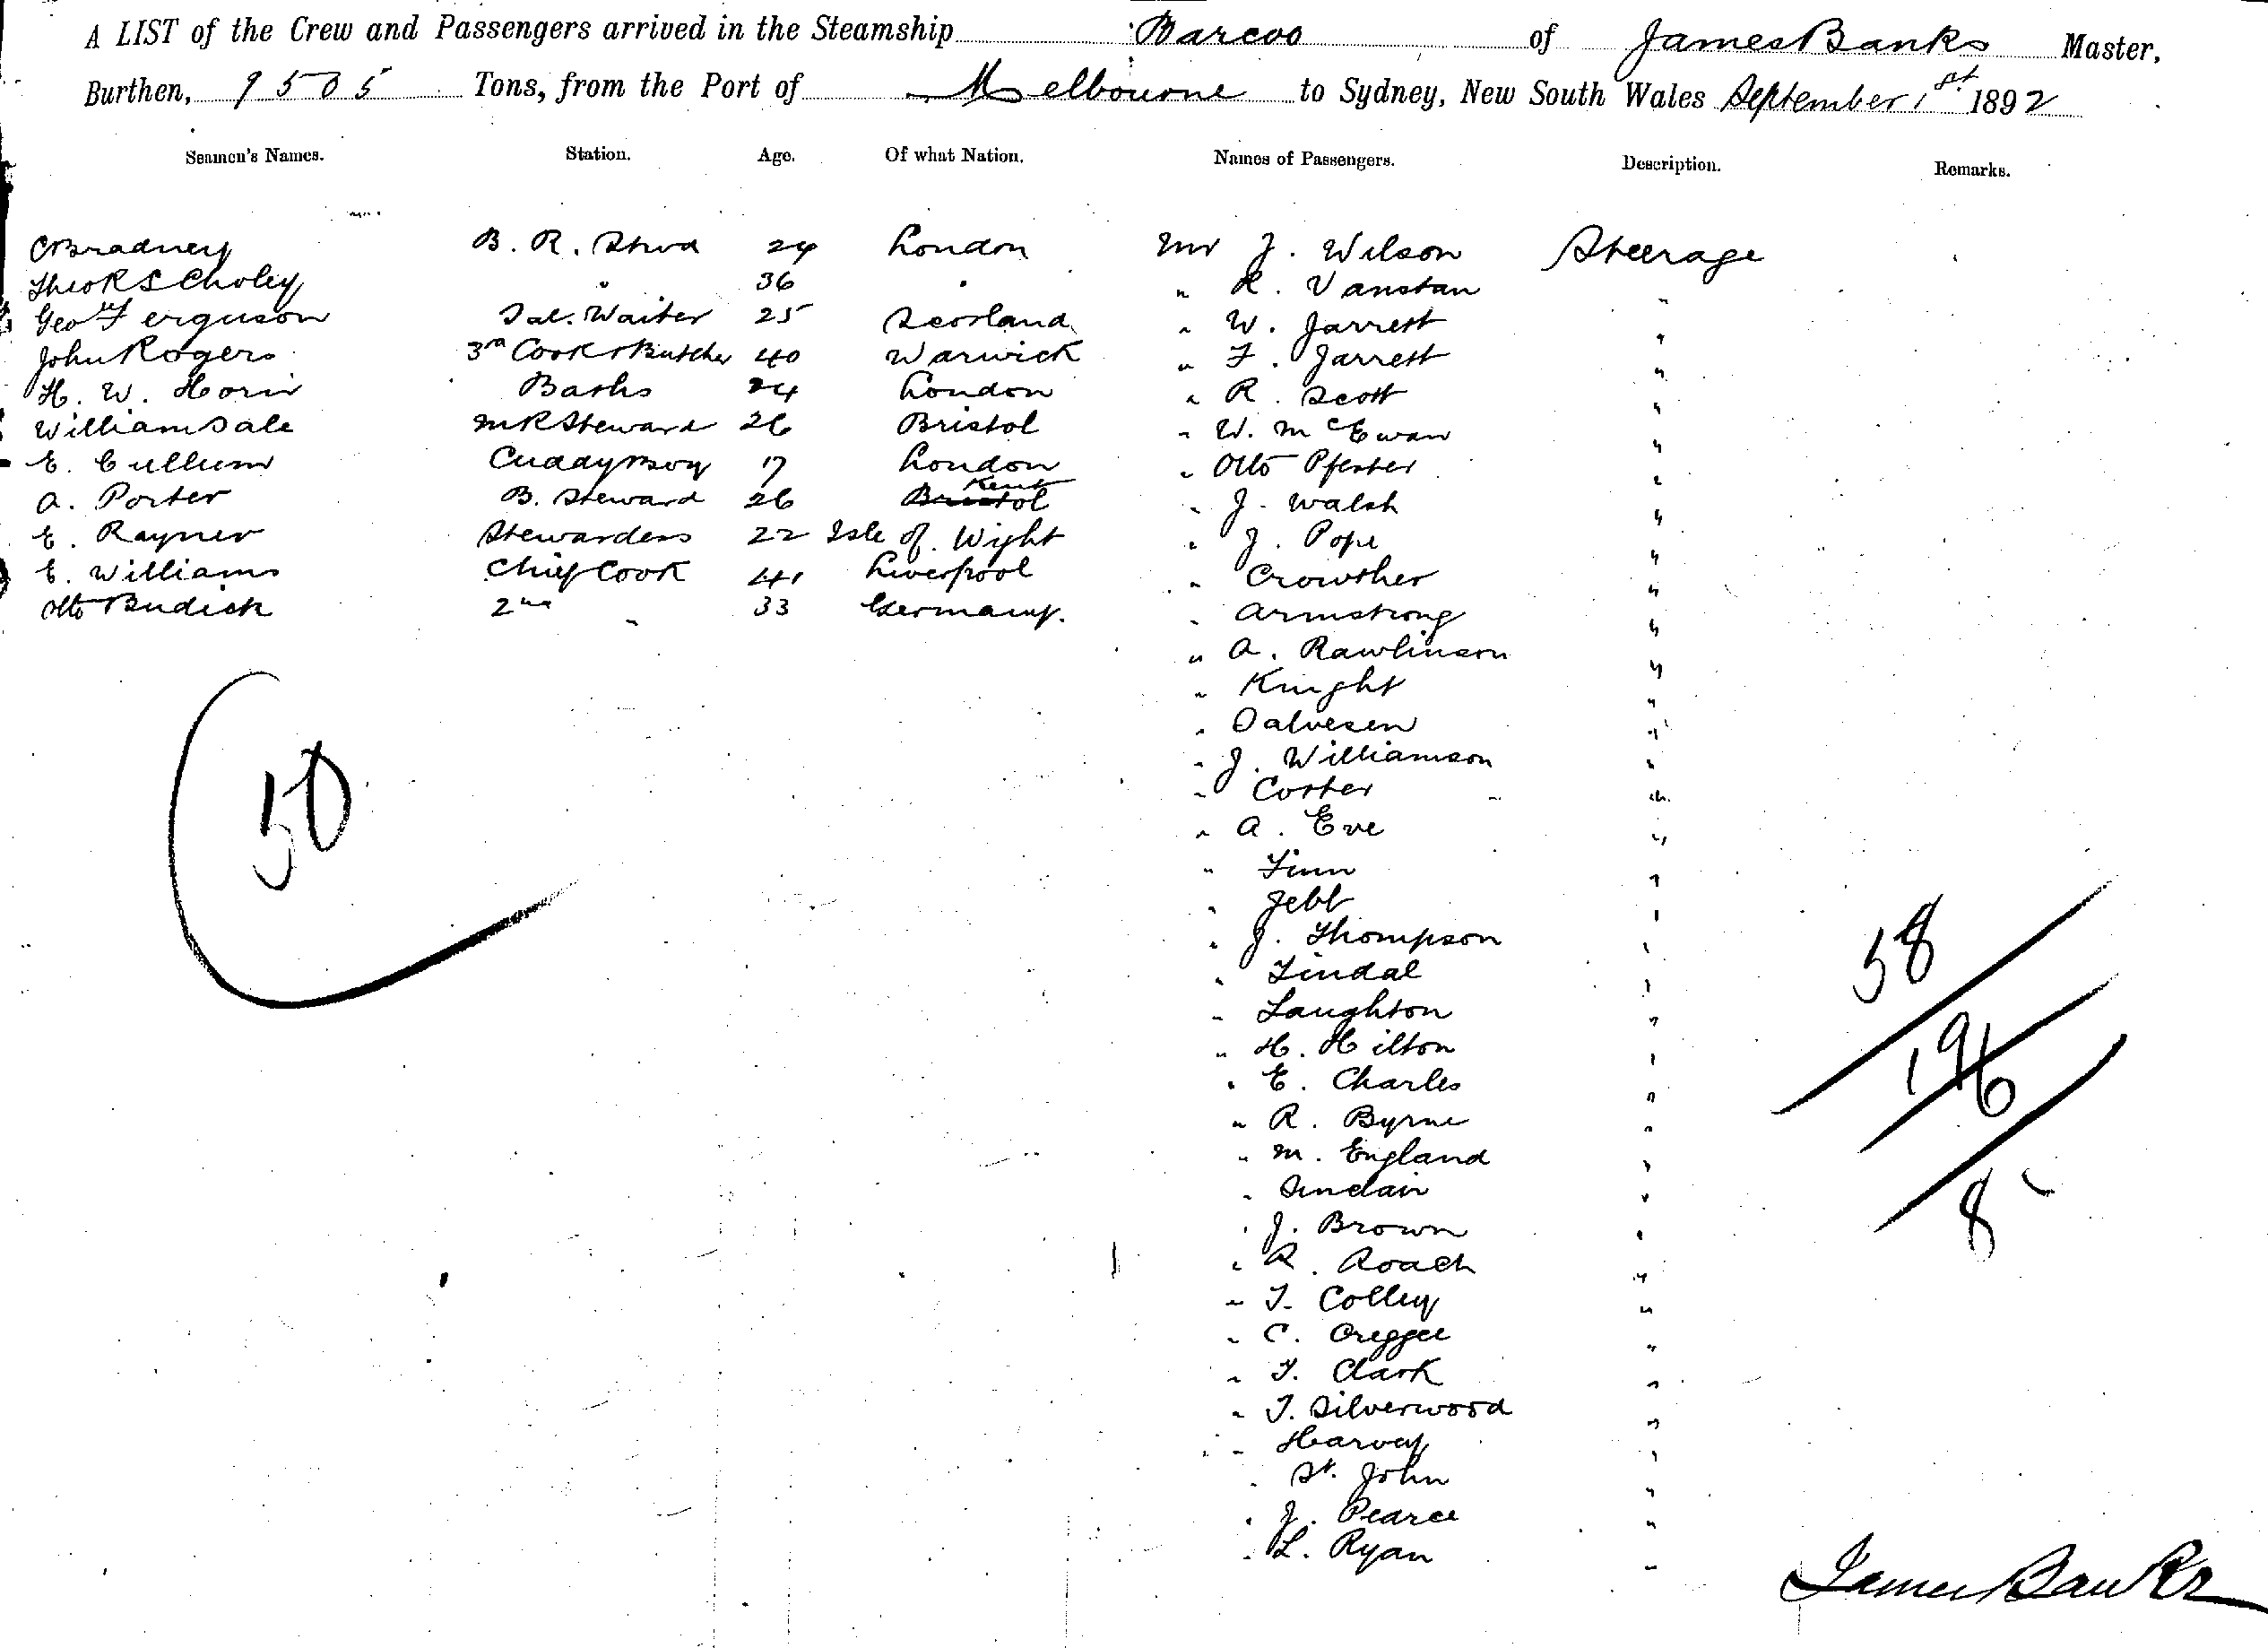 A LIST of the Crew and Passengers arrived in the Steamship Barcoo of James Banks Master,
Burthen, 1505 Tons, from the Port of Melbourne to Sydney, New South Wales September 1st 1892
Seamen's Names. Station. Age. Of what Nation. Names of Passengers. Description. Remarks.
C Bradney B. R. Stwd 24 London Mr J. Wilson Steerage
Theo R S Choley " 36 " " R. Vanstan "
Geo Ferguson Sal. Waiter 25 Scotland " W. Jarrett "
John Rogers 3rd Cook & Butcher 40 Warwick " F. Jarrett "
H. W. Baths 24 London " R. Scott "
William Dale M R Steward 26 Bristol " W. McEwan "
E. Cullum Cuddy Boy 17 London " Otto "
A. Porter B. Steward 26 Bristol Kent " J. Walsh "
E. Rayner Stewardess 22 Isle of Wight " J. Pope "
E. Williams Chief Cook 41 Liverpool " Crowther "
Otto Budick 2nd " 33 Germany. " Armstrong "
" A. Rawlinson "
" Knight "
" Dalvesen "
" J. Williamson "
" Coster "
" A. Eve "
" Finn "
" Jebb "
" J. Thompson "
" Lindal "
" Laughton "
" H. Hilton "
" E. Charles "
" R. Byrne "
" M. England "
" Sinclair "
" J. Brown "
" R. Roach "
" T. Colley "
" C. "
" T. Clark "
" T. Silverwood "
" Harvey "
" St. John "
" J. Pearce "
" L. Ryan "
50
58
196
8
James Banks